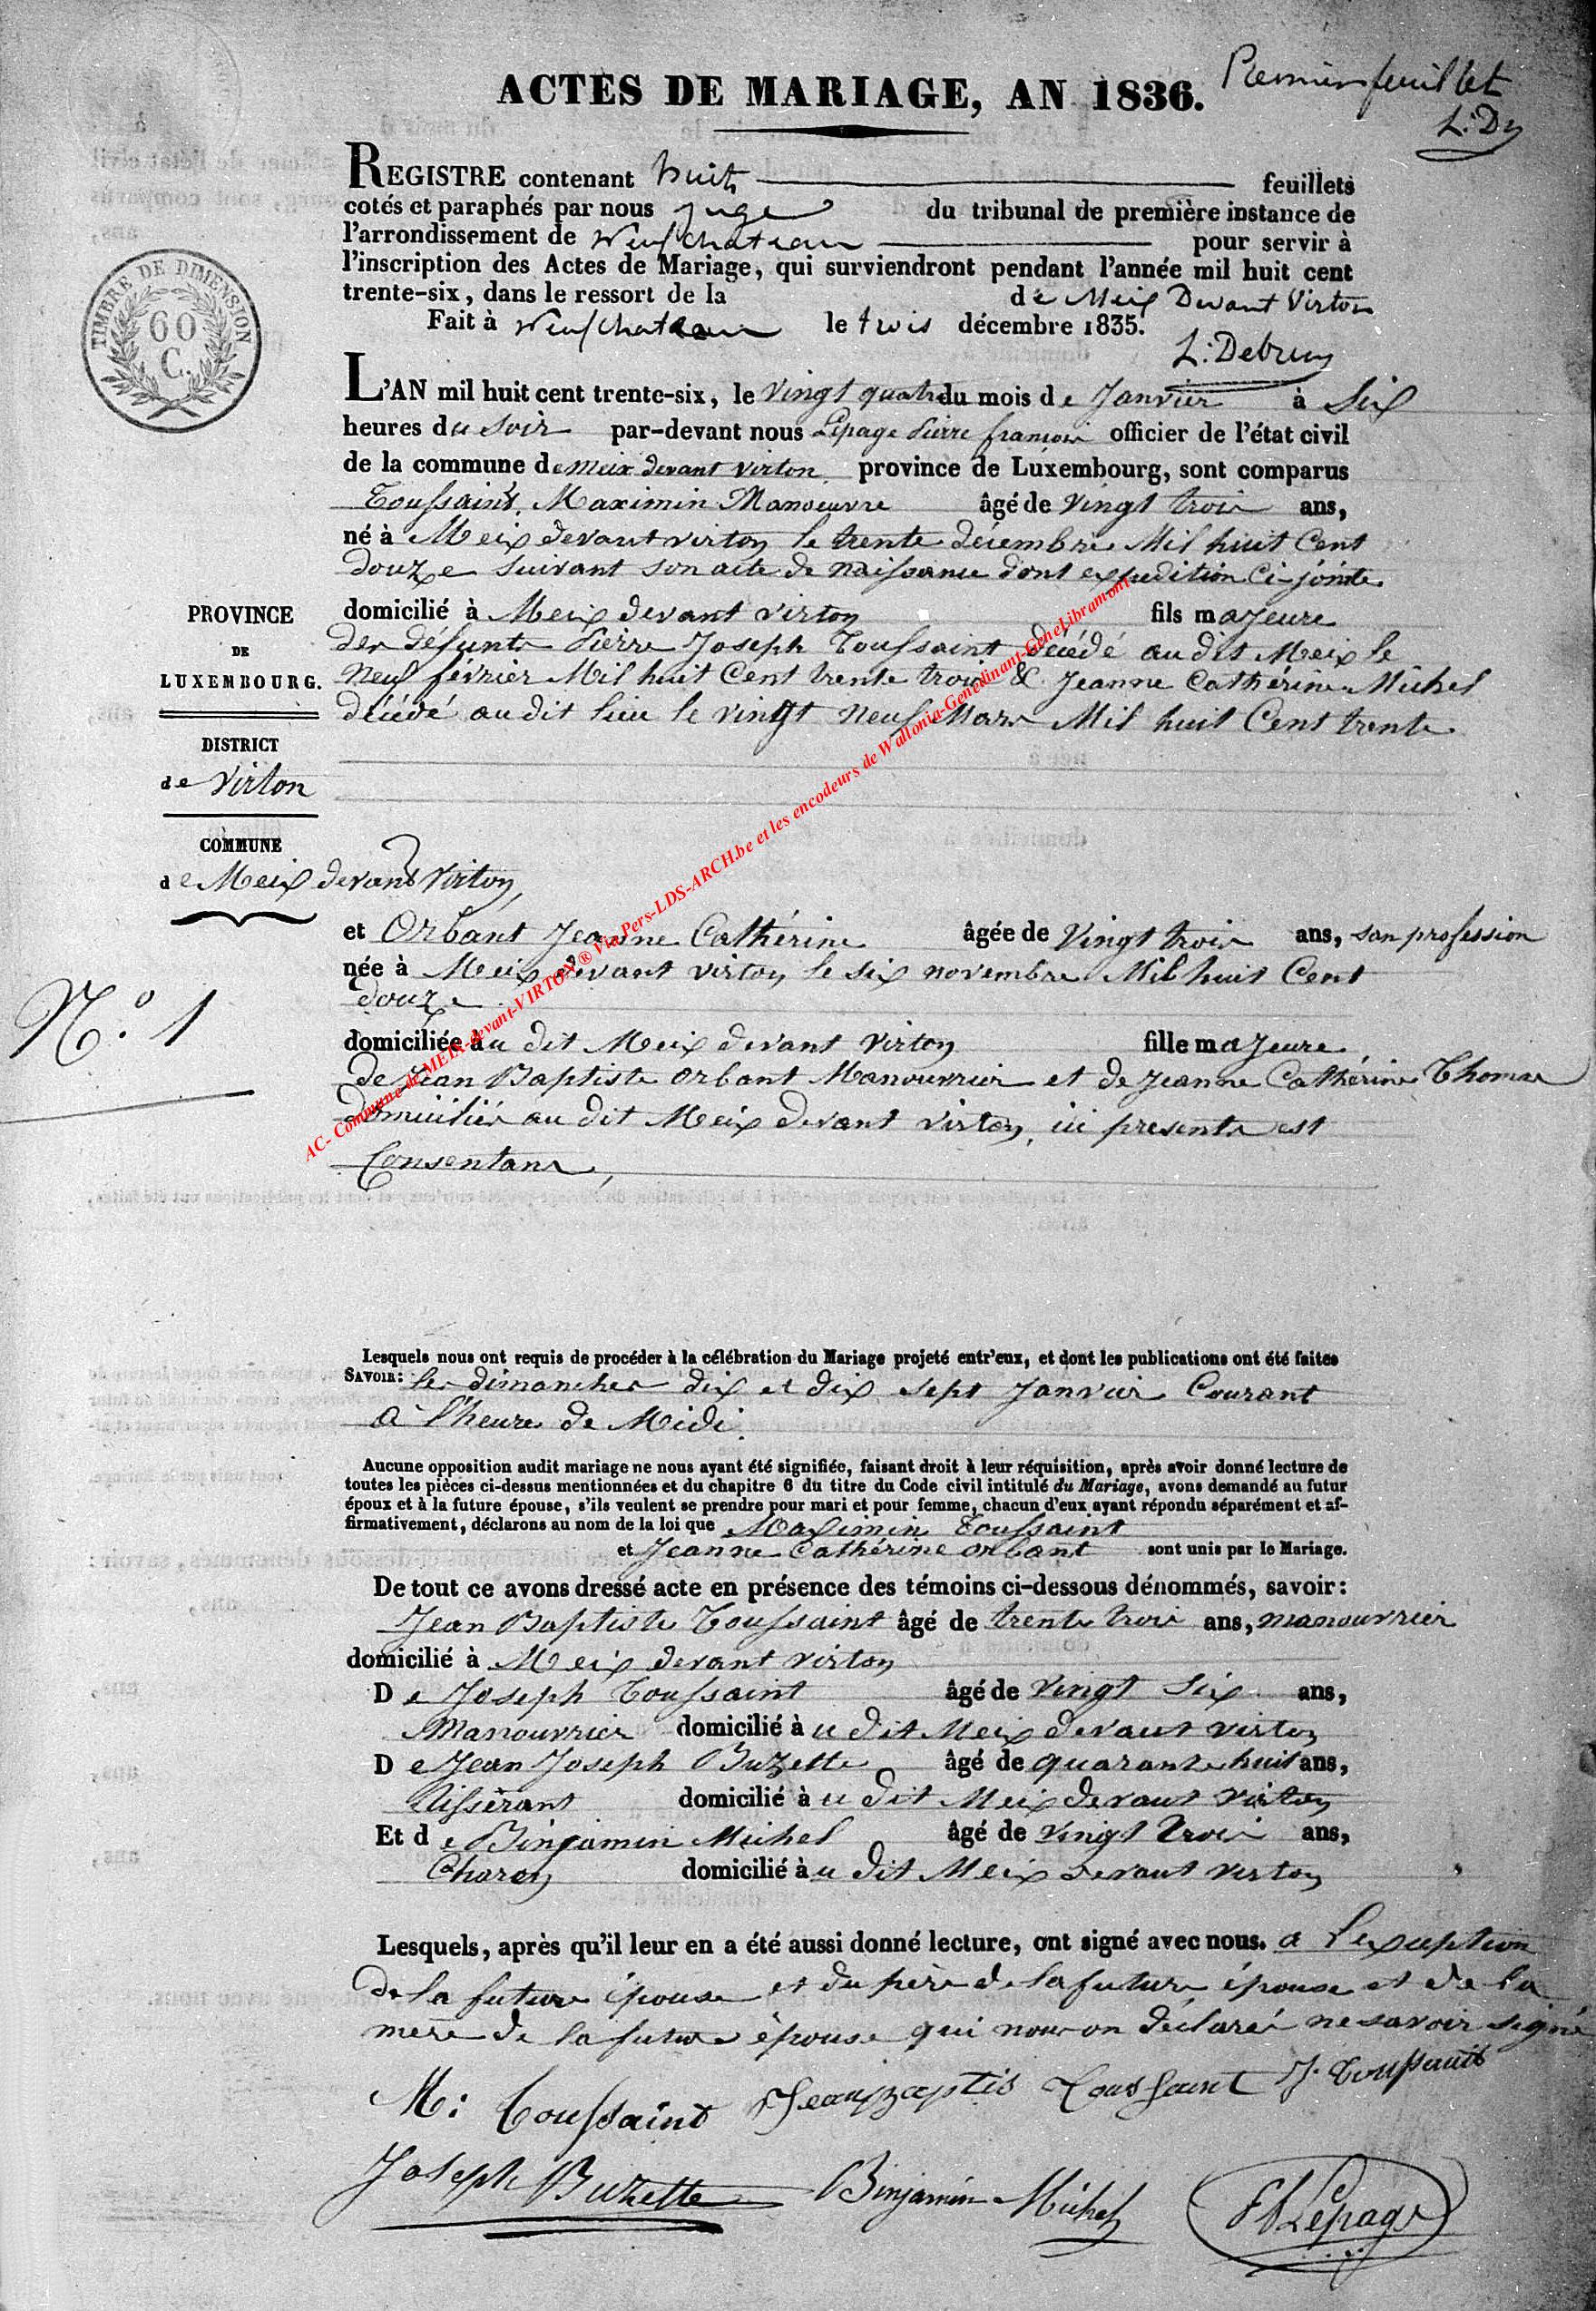 ACTES DE MARIAGE, AN 1836.
Premier feuillet
L: D
REGISTRE contenant huit feuillets
cotés et paraphés par nous juge du tribunal de première instance de
l'arrondissement de Neufchateau pour servir à
l'inscription des Actes de Mariage, qui surviendront pendant l'année mil huit cent
trente-six, dans le ressort de la de Meix Devant Virton
Fait à Neufchateau le trois décembre 1835.
TIMBRE DE DIMENSION
60
C.
L'AN mil huit cent trente-six, le vingt quatre du mois de Janvier à Six
heures du Soir par-devant nous Lepage Pierre françois officier de l'état civil
de la commune de Meix devant virton, province de Luxembourg, sont comparus
Toussaint, Maximin Manoeuvre âgé de vingt trois ans,
né à Meix devant virton le trente décembre Mil huit Cent
douze suivant son acte de naissance dont expedition Ci-jointe
domicilié à Meix devant virton fils majeure
des défunts Pierre Joseph Toussaint décédé au dit Meix le
Neuf février Mil huit Cent trente trois & Jeanne Catherine Michel
décédé au dit lieu le vingt Neuf Mars Mil huit Cent trente
PROVINCE
DE
LUXEMBOURG.
DISTRICT
de Virton
COMMUNE
de Meix devant Virton,
N.º 1
et Orbant Jeanne Cathérine âgée de Vingt trois ans, san profession
née à Meix devant virton le six novembre Mil huit Cent
douze
domiciliée au dit Meix devant Virton fille majeure
de Jean Baptiste Orbant Manouvrier et de Jeanne Cathérine Thomas
domiciliés au dit Meix devant virton, ici presents est
Consentans,
AC- Commune de MEIX-devant-VIRTON ® Via Pers-LDS-ARCH.be et les encodeurs de Wallonia-Genedinant-GeneLibramont
Lesquels nous ont requis de procéder à la célébration du Mariage projeté entr'eux, et dont les publications ont été faites
SAVOIR: les dimanches dix et dix sept Janvier Courant
à l'heure de Midi.
Aucune opposition audit mariage ne nous ayant été signifiée, faisant droit à leur réquisition, après avoir donné lecture de
toutes les pièces ci-dessus mentionnées et du chapitre 6 du titre du Code civil intitulé du Mariage, avons demandé au futur
époux et à la future épouse, s'ils veulent se prendre pour mari et pour femme, chacun d'eux ayant répondu séparément et af-
firmativement, déclarons au nom de la loi que Maximin Toussaint
et Jeanne Cathérine Orbant sont unis par le Mariage.
De tout ce avons dressé acte en présence des témoins ci-dessous dénommés, savoir:
Jean Baptiste Toussaint âgé de trente trois ans, manouvrier
domicilié à Meix devant virton
De Joseph Toussaint âgé de Vingt Six ans,
Manouvrier domicilié au dit Meix devant virton
De Jean Joseph Buzette âgé de quarante huit ans,
Tisserant domicilié au dit Meix devant virton
Et de Binjamin Michel âgé de vingt trois ans,
Charon domicilié au dit Meix devant virton
Lesquels, après qu'il leur en a été aussi donné lecture, ont signé avec nous. a l'exception
de la future épouse et du père de la future épouse et de la
mère de la future épouse qui nous on déclaré ne savoir signé
M: Toussaint Jean baptis Toussaint J. Toussaint
Joseph Buzette Binjamin Michel Lepage